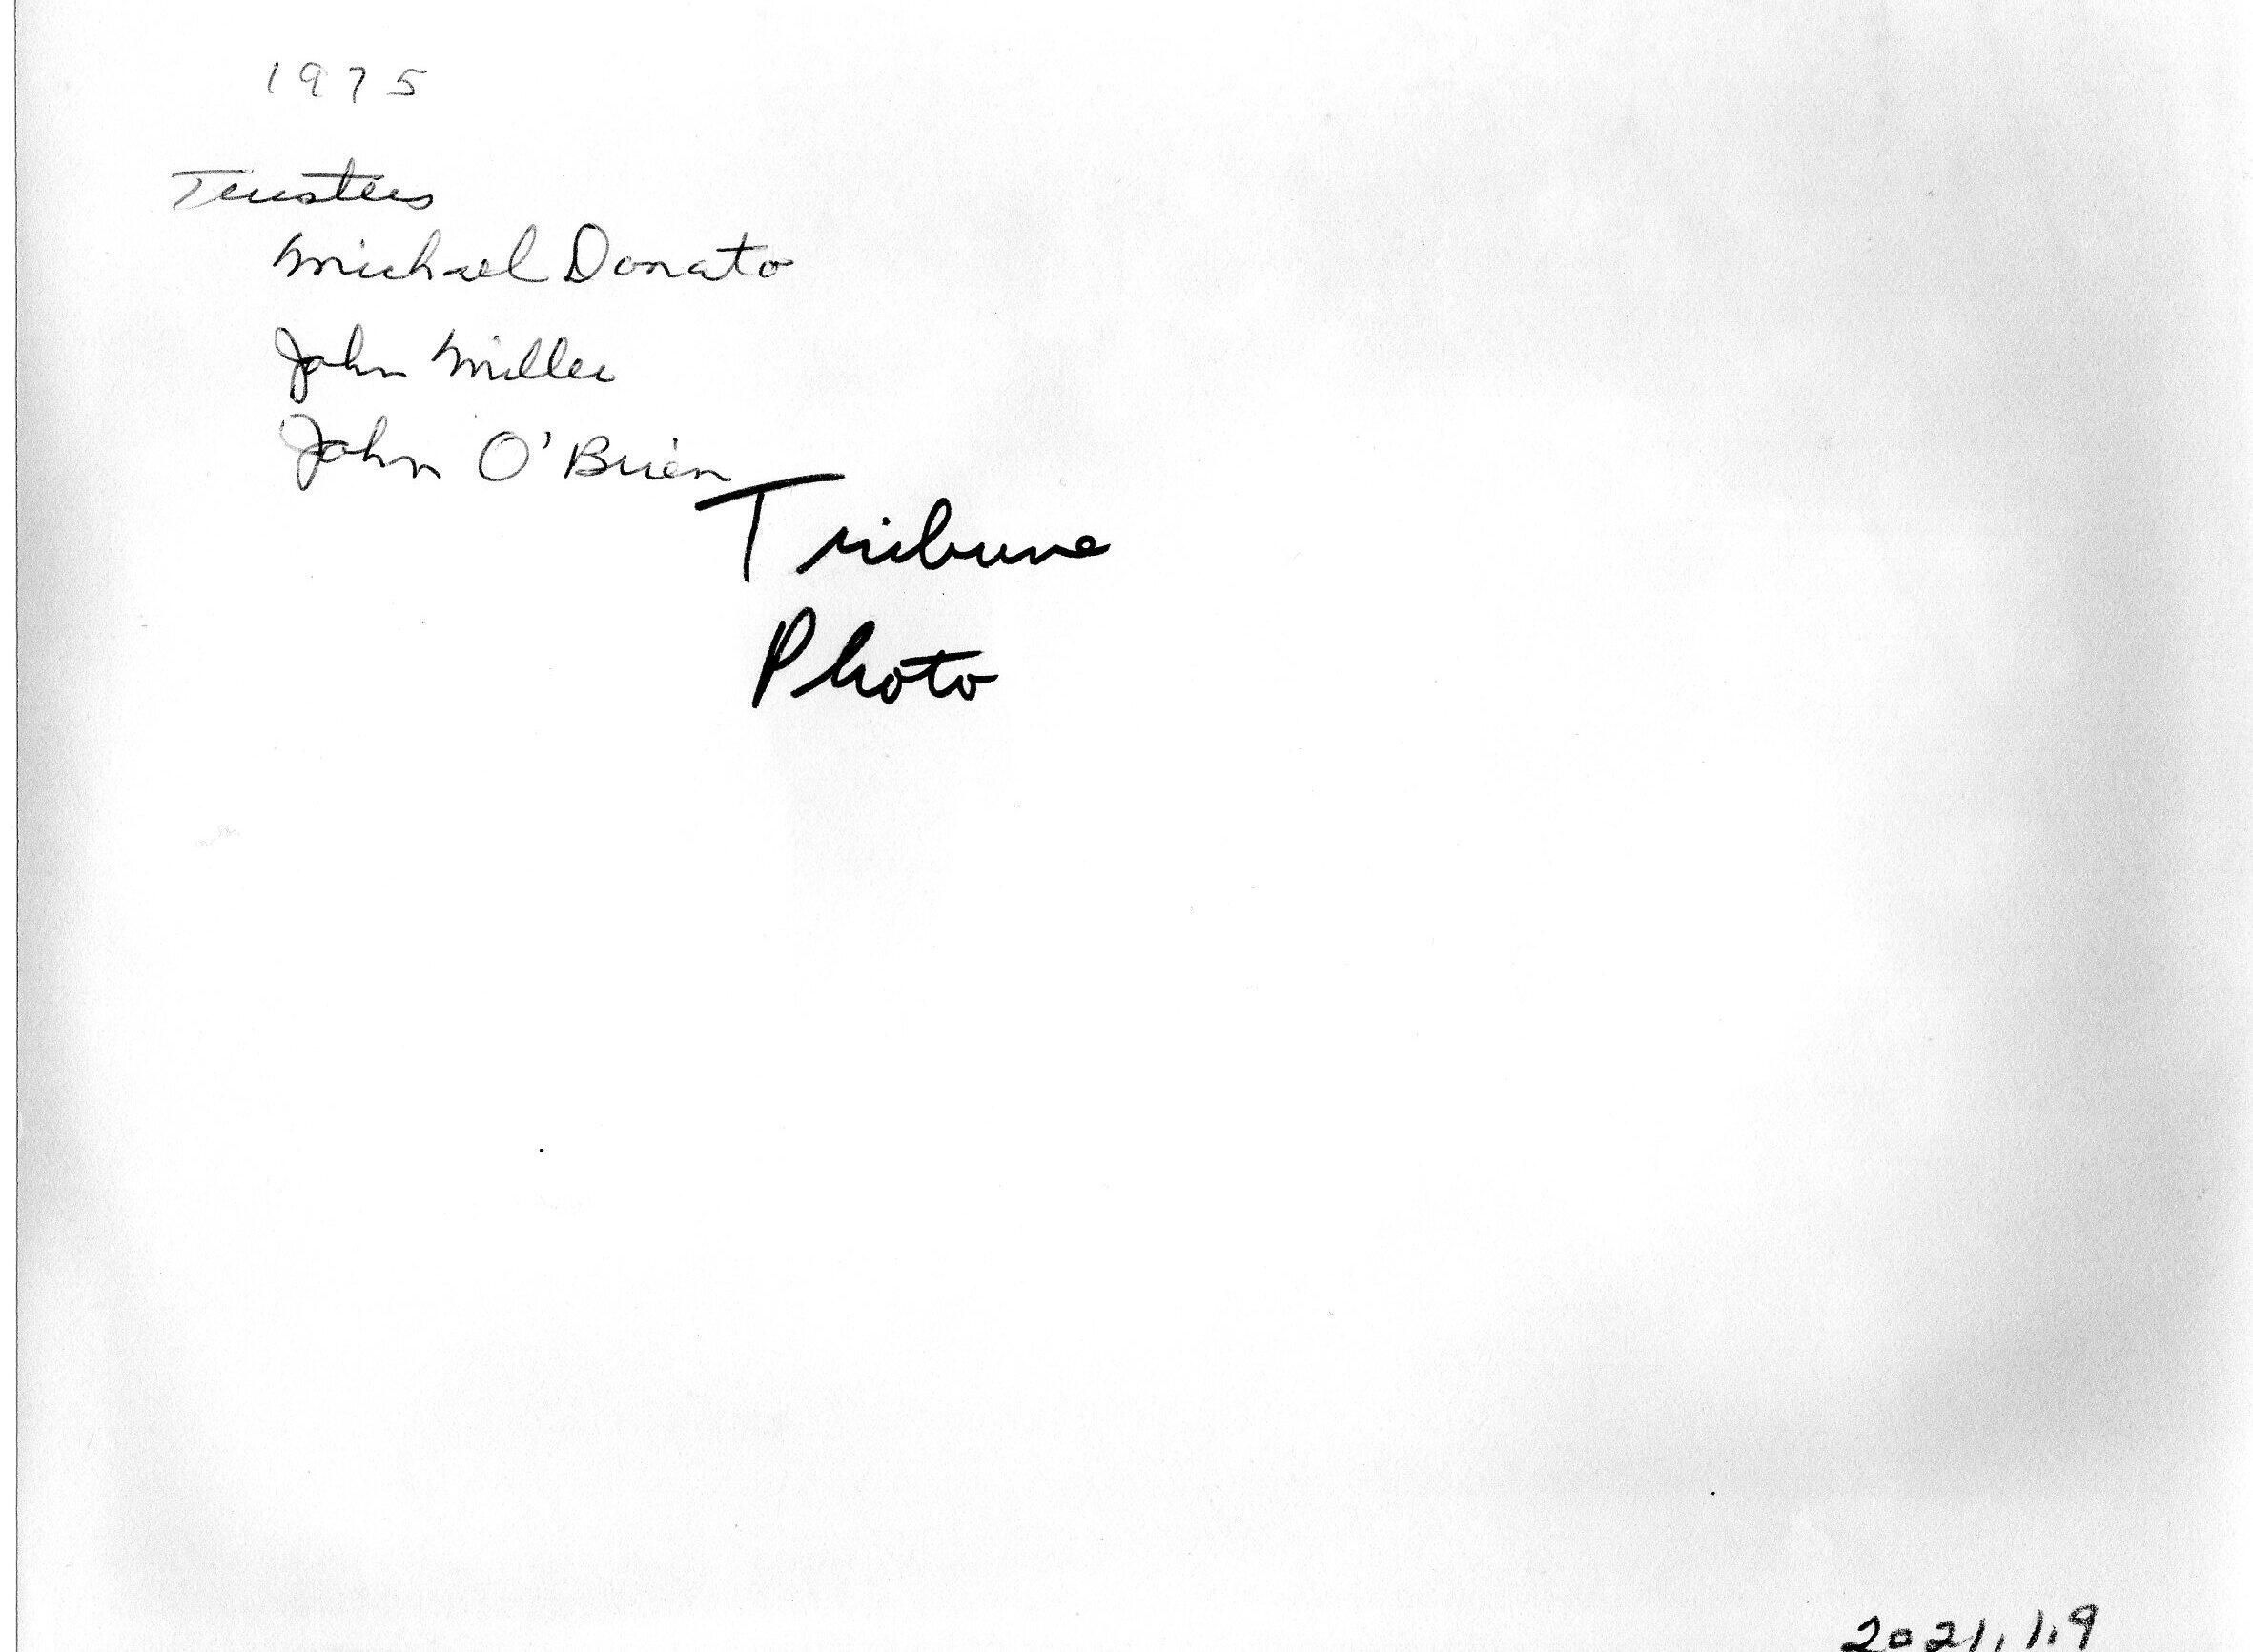 1975
Trustees
Michael Donato
John Miller
John O'Brien
Tribune
Photo
2021.1.9